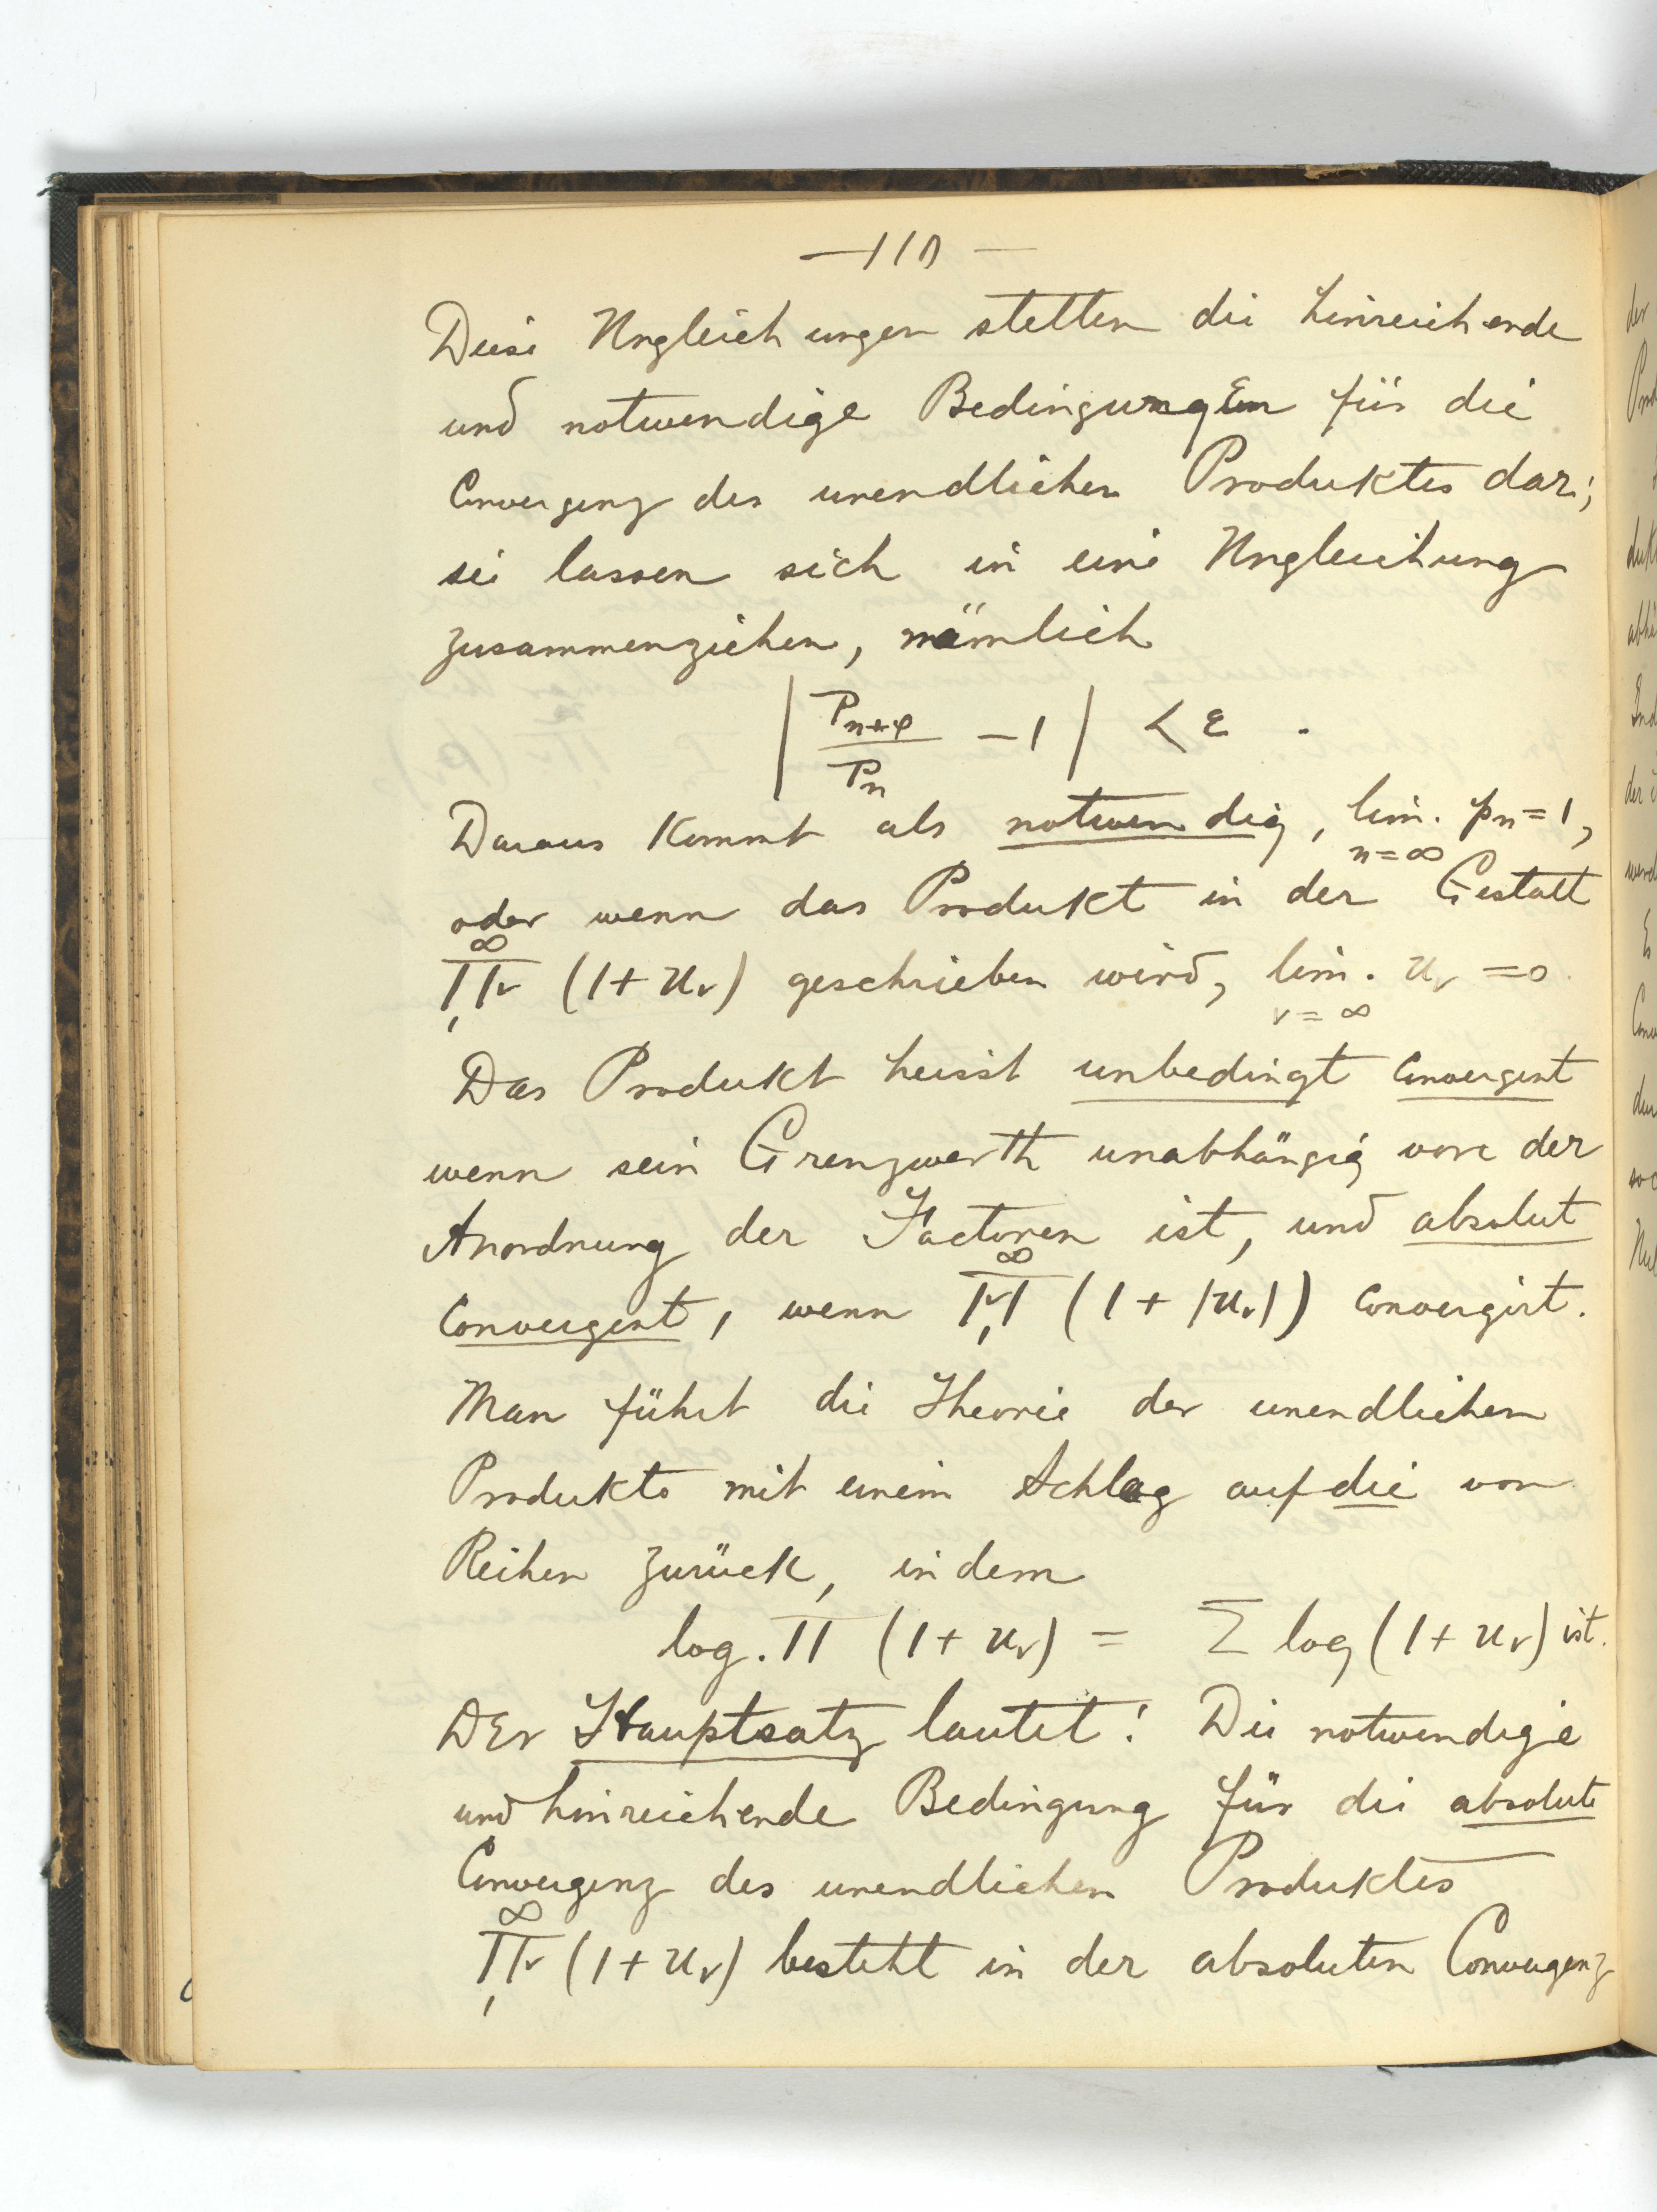 — 110 —
Diese Ungleichungen stellen die hinreichende
und notwendige Bedingungen für die
Convergenz des unendlichen Produktes dar;
sie lassen sich in eine Ungleichung
zusammenziehen, nämlich
| P_{n+φ} / P_n − 1 | < ε .
Daraus kommt als notwendig, lim. p_n = 1,
n = ∞
oder wenn das Produkt in der Gestalt
∞
∏_ν (1 + u_ν) geschrieben wird, lim. u_ν = 0
1
ν = ∞
Das Produkt heisst unbedingt convergent
wenn sein Grenzwerth unabhängig von der
Anordnung der Factoren ist, und absolut
convergent, wenn ∏_ν^∞ (1 + |u_ν|) convergirt.
1
Man führt die Theorie der unendlichen
Produkte mit einem Schlag auf die von
Reihen zurück, indem
log. ∏ (1 + u_ν) = Σ log (1 + u_ν) ist.
Der Hauptsatz lautet: Die notwendige
und hinreichende Bedingung für die absolute
Convergenz des unendlichen Produktes
∞
∏_ν (1 + u_ν) besteht in der absoluten Convergenz
1
der